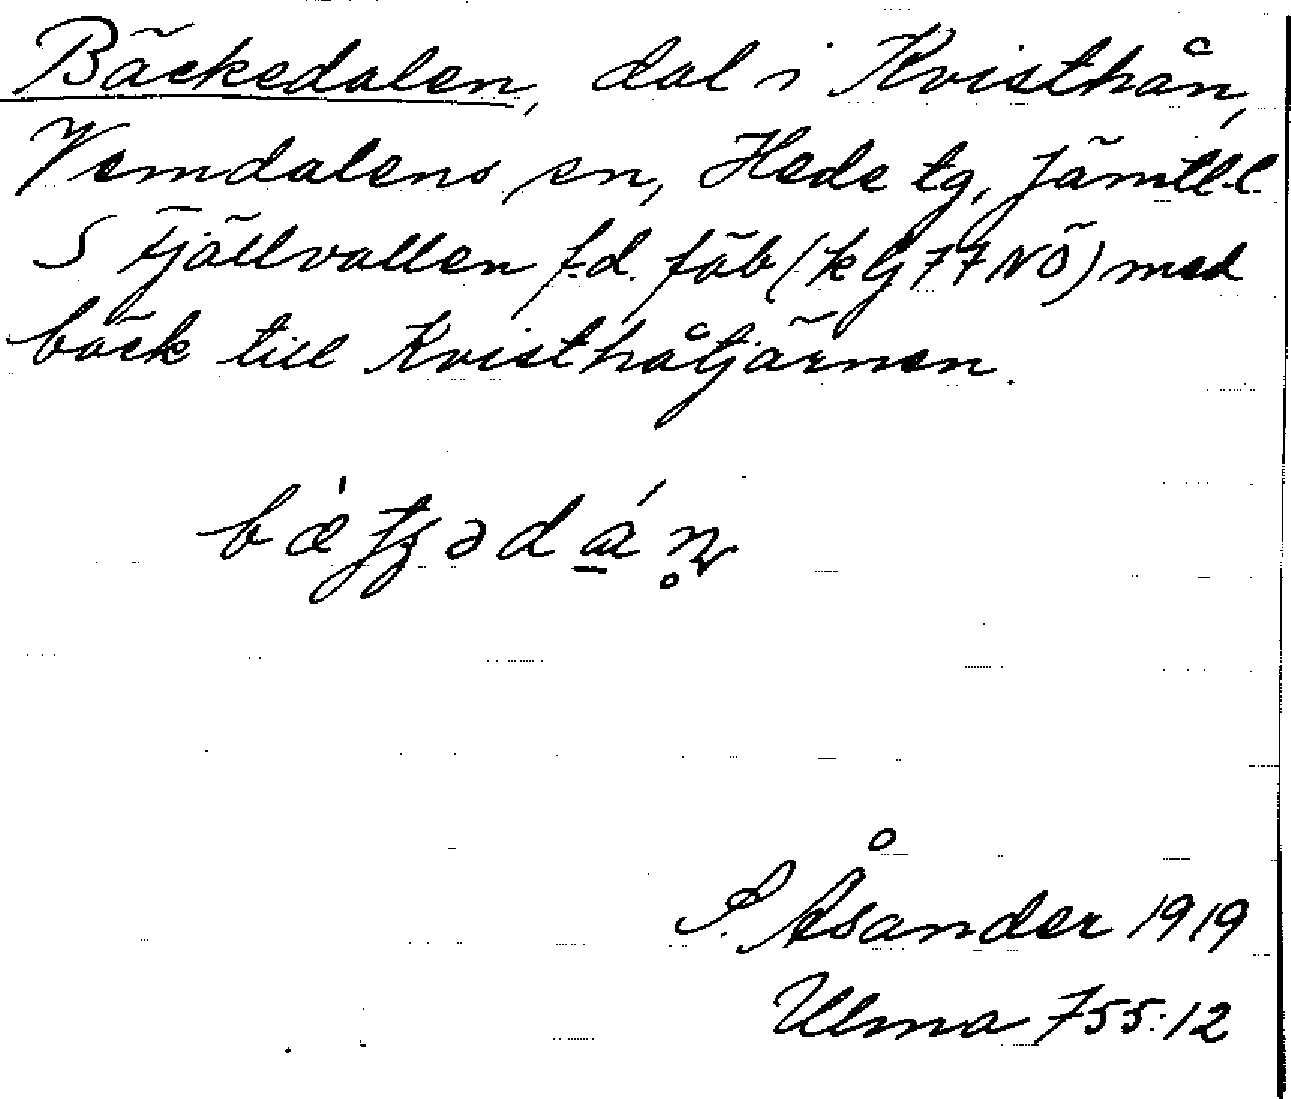 Bäckedalen, dal i Kvisthån,
Vemdalens sn, Hede tg, Jämtl.l.
S Fjällvallen f.d. fäb (k G 77 NÖ) med
bäck till Kvisthåtjärnen.
S. Åsander 1919
Ulma 755:12